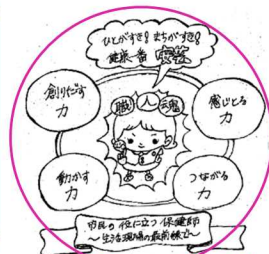 ひとがすき！まちがすき！
健康一番
職人魂
創りだす
力
感じとる
力
動かす
力
つながる
力
市民の役に立つ保健師
～生活現場の最前線で～